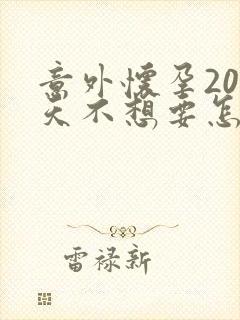 意外怀孕20
天不想要怎
雷禄新